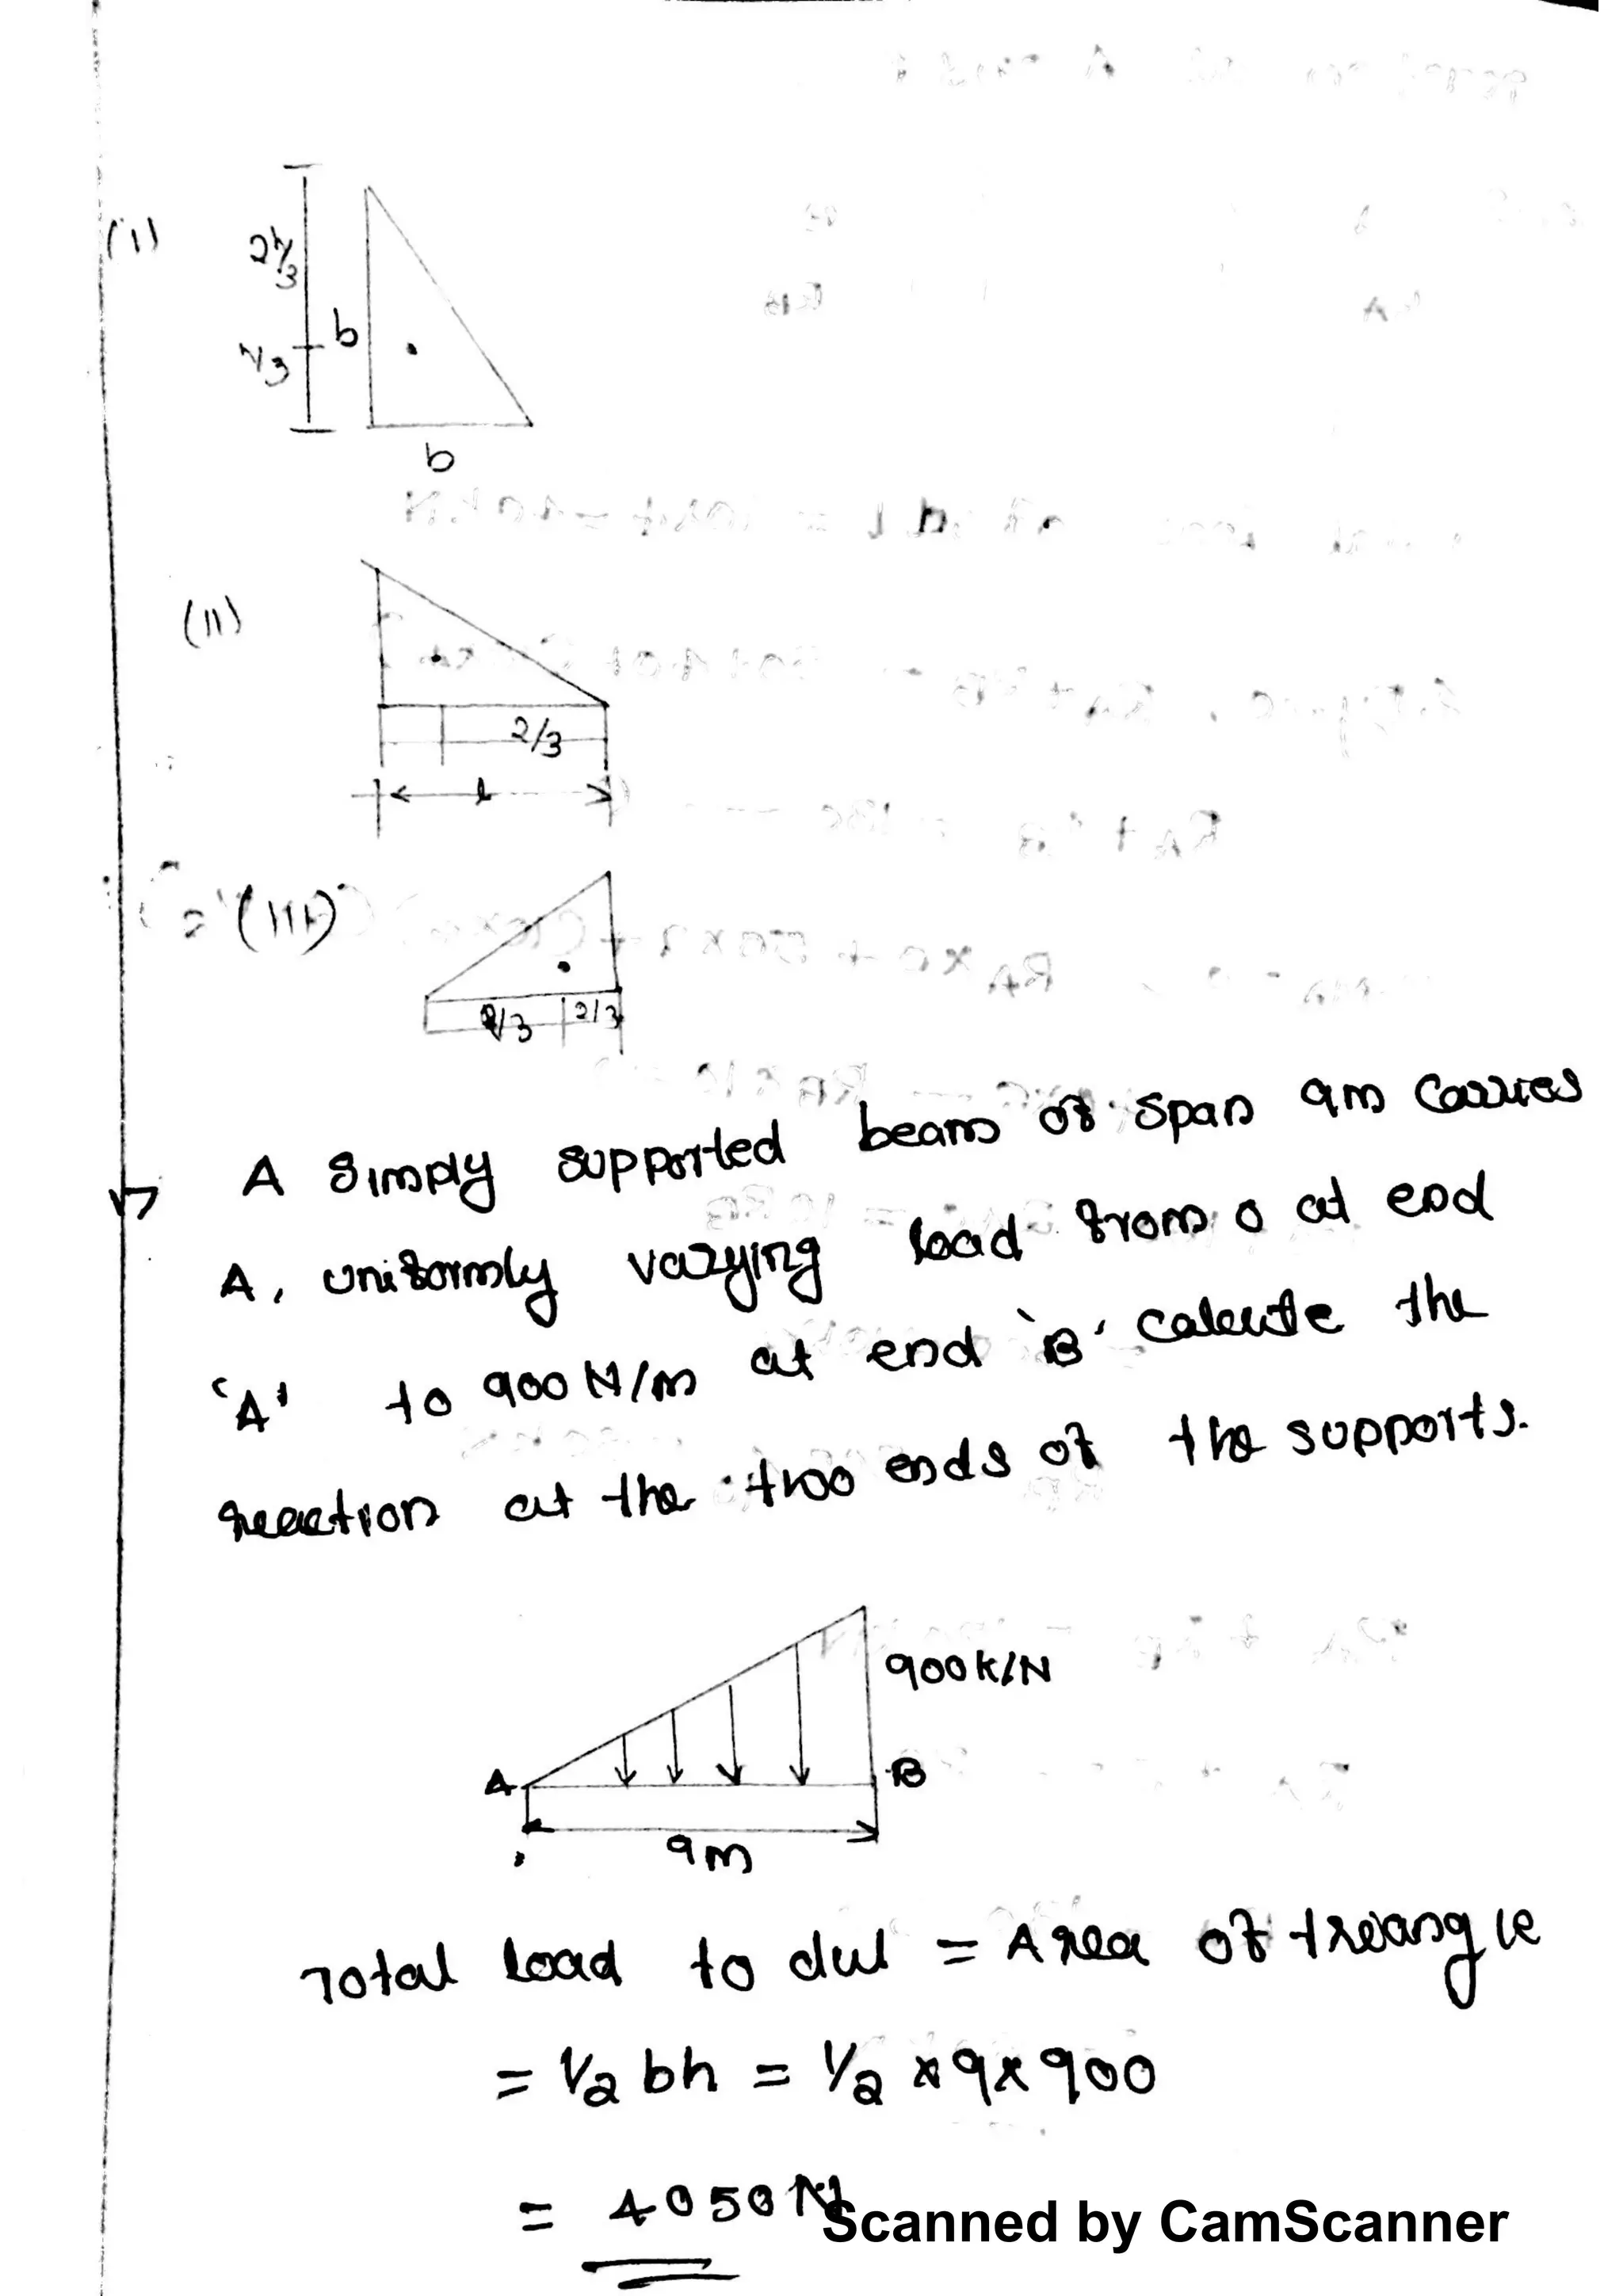 (i)
2h/3
h/3
b
b
(ii)
2/3
l
(iii)
2/3
A simply supported beam of span 9m carries
A, uniformly varying load from 0 at end
'A' to 900 N/m at end 'B' calculte the
reaction at the two ends of the supports.
900k/N
A
B
9m
Total load to dul = Area of treangle
= 1/2 bh = 1/2 x 9 x 900
= 4050 N
Scanned by CamScanner